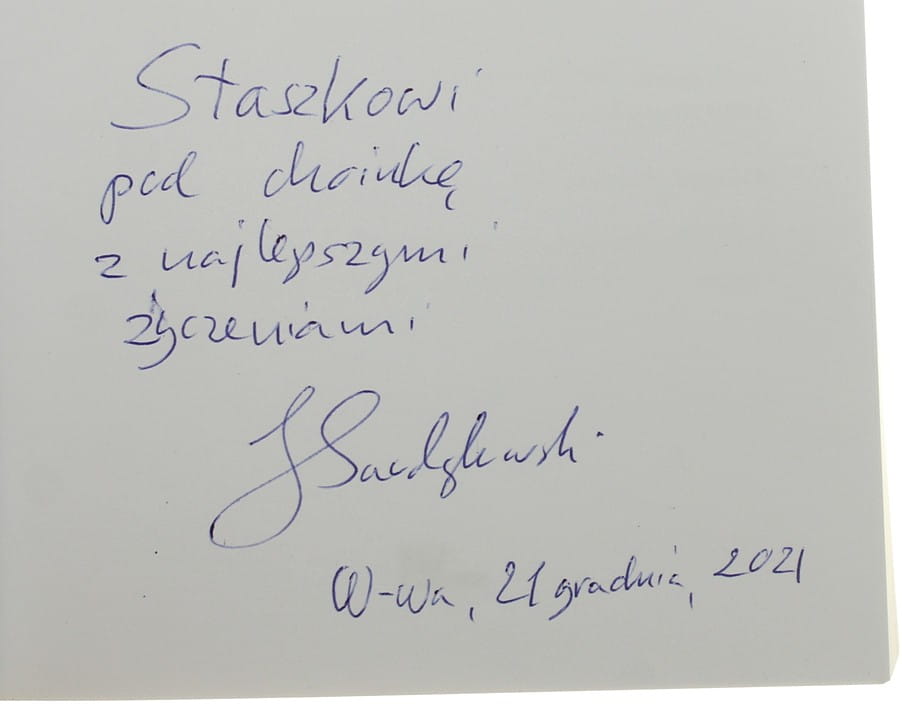 Staszkowi
pod choinkę
z najlepszymi
życzeniami
W-wa, 21 grudnia, 2021